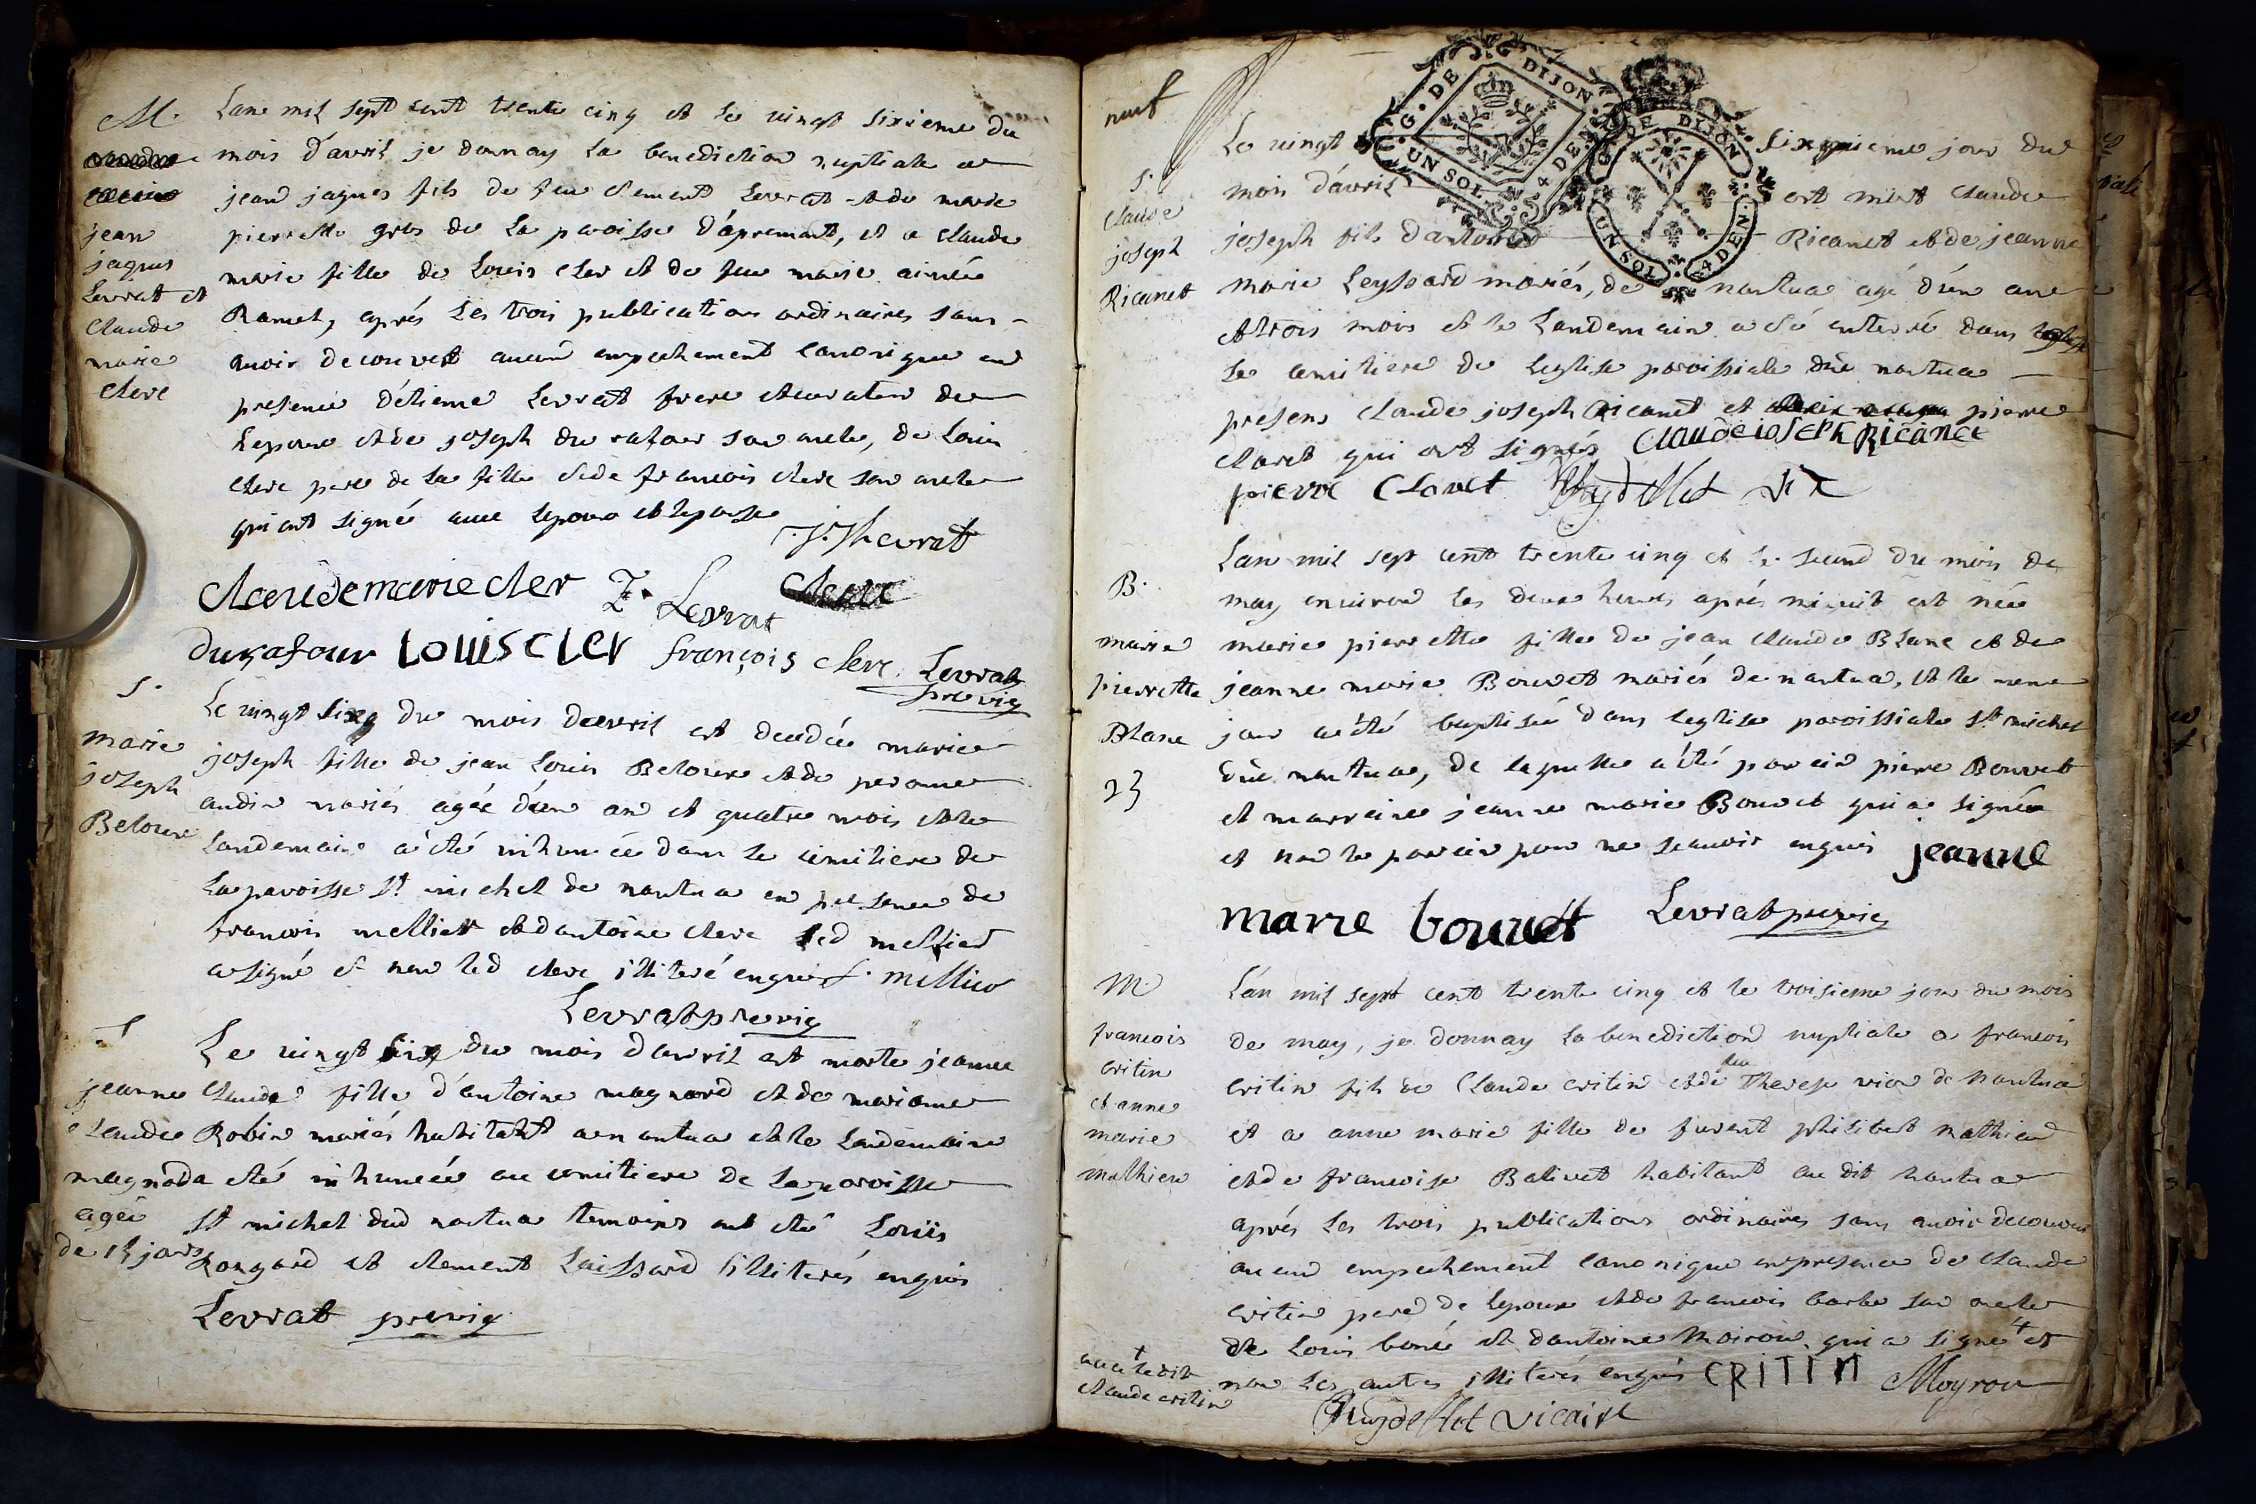 M.
Lane mil sept cent trente cinq et le vingt sixieme du
mois d'avril je donnay la benediction nuptiale a
jean jaques fils de feu Clement Levrat et de marie
pierrette gros de la paroisse d'apremont, et a claude
marie fille de Louis cler et de feue marie aimée
Ramel, aprés les trois publications ordinaires sans
avoir decouvert aucun empechement canonique en
presence d'étienne Levrat frere et curateur de
lepoux et de joseph du rafour son oncle, de Louis
clerc pere de la fille et de francois clerc son oncle
qui ont signé avec lepoux et lepouse
jean
jaques
Levrat et
claude
marie
clerc
J. J. Levrat
claude marie cler E. Levrat
durafour Louis cler françois clerc Levrat
previg
S.
marie
joseph
Beloux
Le vingt six du mois davril est decedée marie
joseph fille de jean Louis Beloux et de peronne
audin mariés agée d'un an et quatre mois et le
landemain a été inhumée dans le cimitiere de
la paroisse St michel de nantua en presence de
francois mellier et d'antoine clerc led mellier
a signé et non led clerc illiteré enquis f. mellier
Levrat previg
S
jeanne
claude
magnod
agée
de 15 jours
Le vingt six du mois d'avril est morte jeanne
Claude fille d'antoine magnard et de marianne
Robin mariés habitant a nantua et le landemain
a eté inhumée au cimitiere de la paroisse
St michel dud nantua temoins ont eté Louis
Rongard et clement Laissard illiterés enquis
Levrat previg
neuf
G. DE DIJON
UN SOL 4 DEN.
G. DE DIJON
UN SOL 4 DEN.
S.
claude
joseph
Ricanet
Le vingt sixieme jour du
mois d'avril est mort claude
joseph fils d'antoine Ricanet et de jeanne
marie Leyssard mariés, de nantua agé d'un an
et trois mois et le landemain a eté enterré dans
le cemitiere de leglise paroissiale dud nantua
présens claude joseph Ricanet et pierre
claret qui ont signés claude ioseph Ricanet
pierre Claret
B.
marie
pierrette
Blanc
23
Lan mil sept cent trente cinq et le second du mois de
may environ les deux heures aprés minuit est née
marie pierrette fille de jean claude Blanc et de
jeanne marie Bouvet mariés de nantua, et le meme
jour a été baptisée dans leglise paroissiale St michel
dud nantua, de laquelle a été parain pierre Bouvet
et marraine jeanne marie Bouvet qui a signée
et non le parrain pour ne scauoir enquis jeanne
marie bouuet Levrat previg
M.
francois
critin
et anne
marie
mathieu
L'an mil sept cent trente cinq et le troisieme jour du mois
de may, je donnay la benediction nuptiale a francois
feu
critin fils de Claude critin et de Therese vion de Nantua
et a anne marie fille de furent philibert mathieu
et de francoise Balivet habitant au dit nantua
aprés les trois publications ordinaires sans avoir decouvert
aucun empechement canonique en presence de claude
critin pere de lepoux et de francois barbe son oncle
de Louis boné et dantoine Moiron qui a signé + et
non les autres illiterés enquis CRITIN Moyron
avec + ledit
claude critin
vicaire